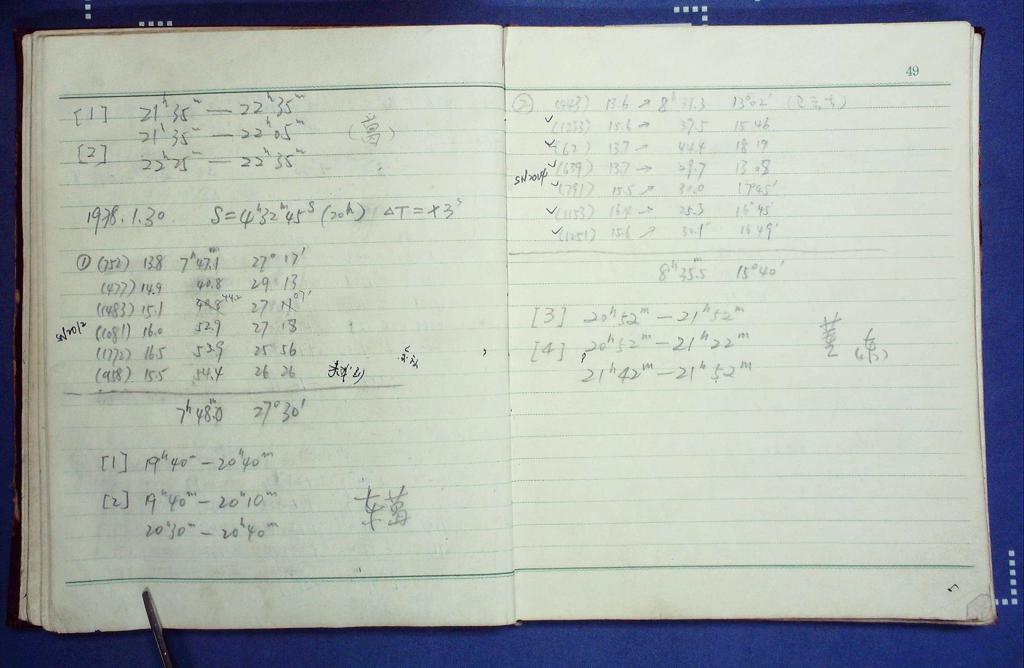 [1] 21ʰ35ᵐ — 22ʰ35ᵐ
21ʰ35ᵐ — 22ʰ05ᵐ
[2] 22ʰ25ᵐ — 22ʰ35ᵐ
1978.1.30 S=4ʰ32ᵐ45ˢ (20h) ΔT=+3ˢ
① (752) 13.8 7ʰ47.1ᵐ 27° 17′
(477) 14.9 40.8 29 13
(1483) 15.1 44.2 27 07′
(1081) 16.0 52.9 27 18
(1772) 16.5 53.9 25 56
(958) 15.5 54.4 26 26
7ʰ48.0ᵐ 27°30′
[1] 19ʰ40ᵐ — 20ʰ40ᵐ
[2] 19ʰ40ᵐ — 20ʰ10ᵐ
20ʰ30ᵐ — 20ʰ40ᵐ
49
② (443) 13.6 → 8ʰ 31.3 13°02′
(1233) 15.6 → 37.5 15 46
(62) 13.7 → 44.4 18 19
(639) 13.7 → 29.7 13 08
(791) 15.5 → 30.0 17°05′
(1153) 16.4 → 25.3 16°45′
(1251) 15.6 → 30.1 16 49′
8ʰ35.5ᵐ 15°40′
[3] 20ʰ52ᵐ — 21ʰ52ᵐ
[4] 20ʰ52ᵐ — 21ʰ22ᵐ
21ʰ42ᵐ — 21ʰ52ᵐ